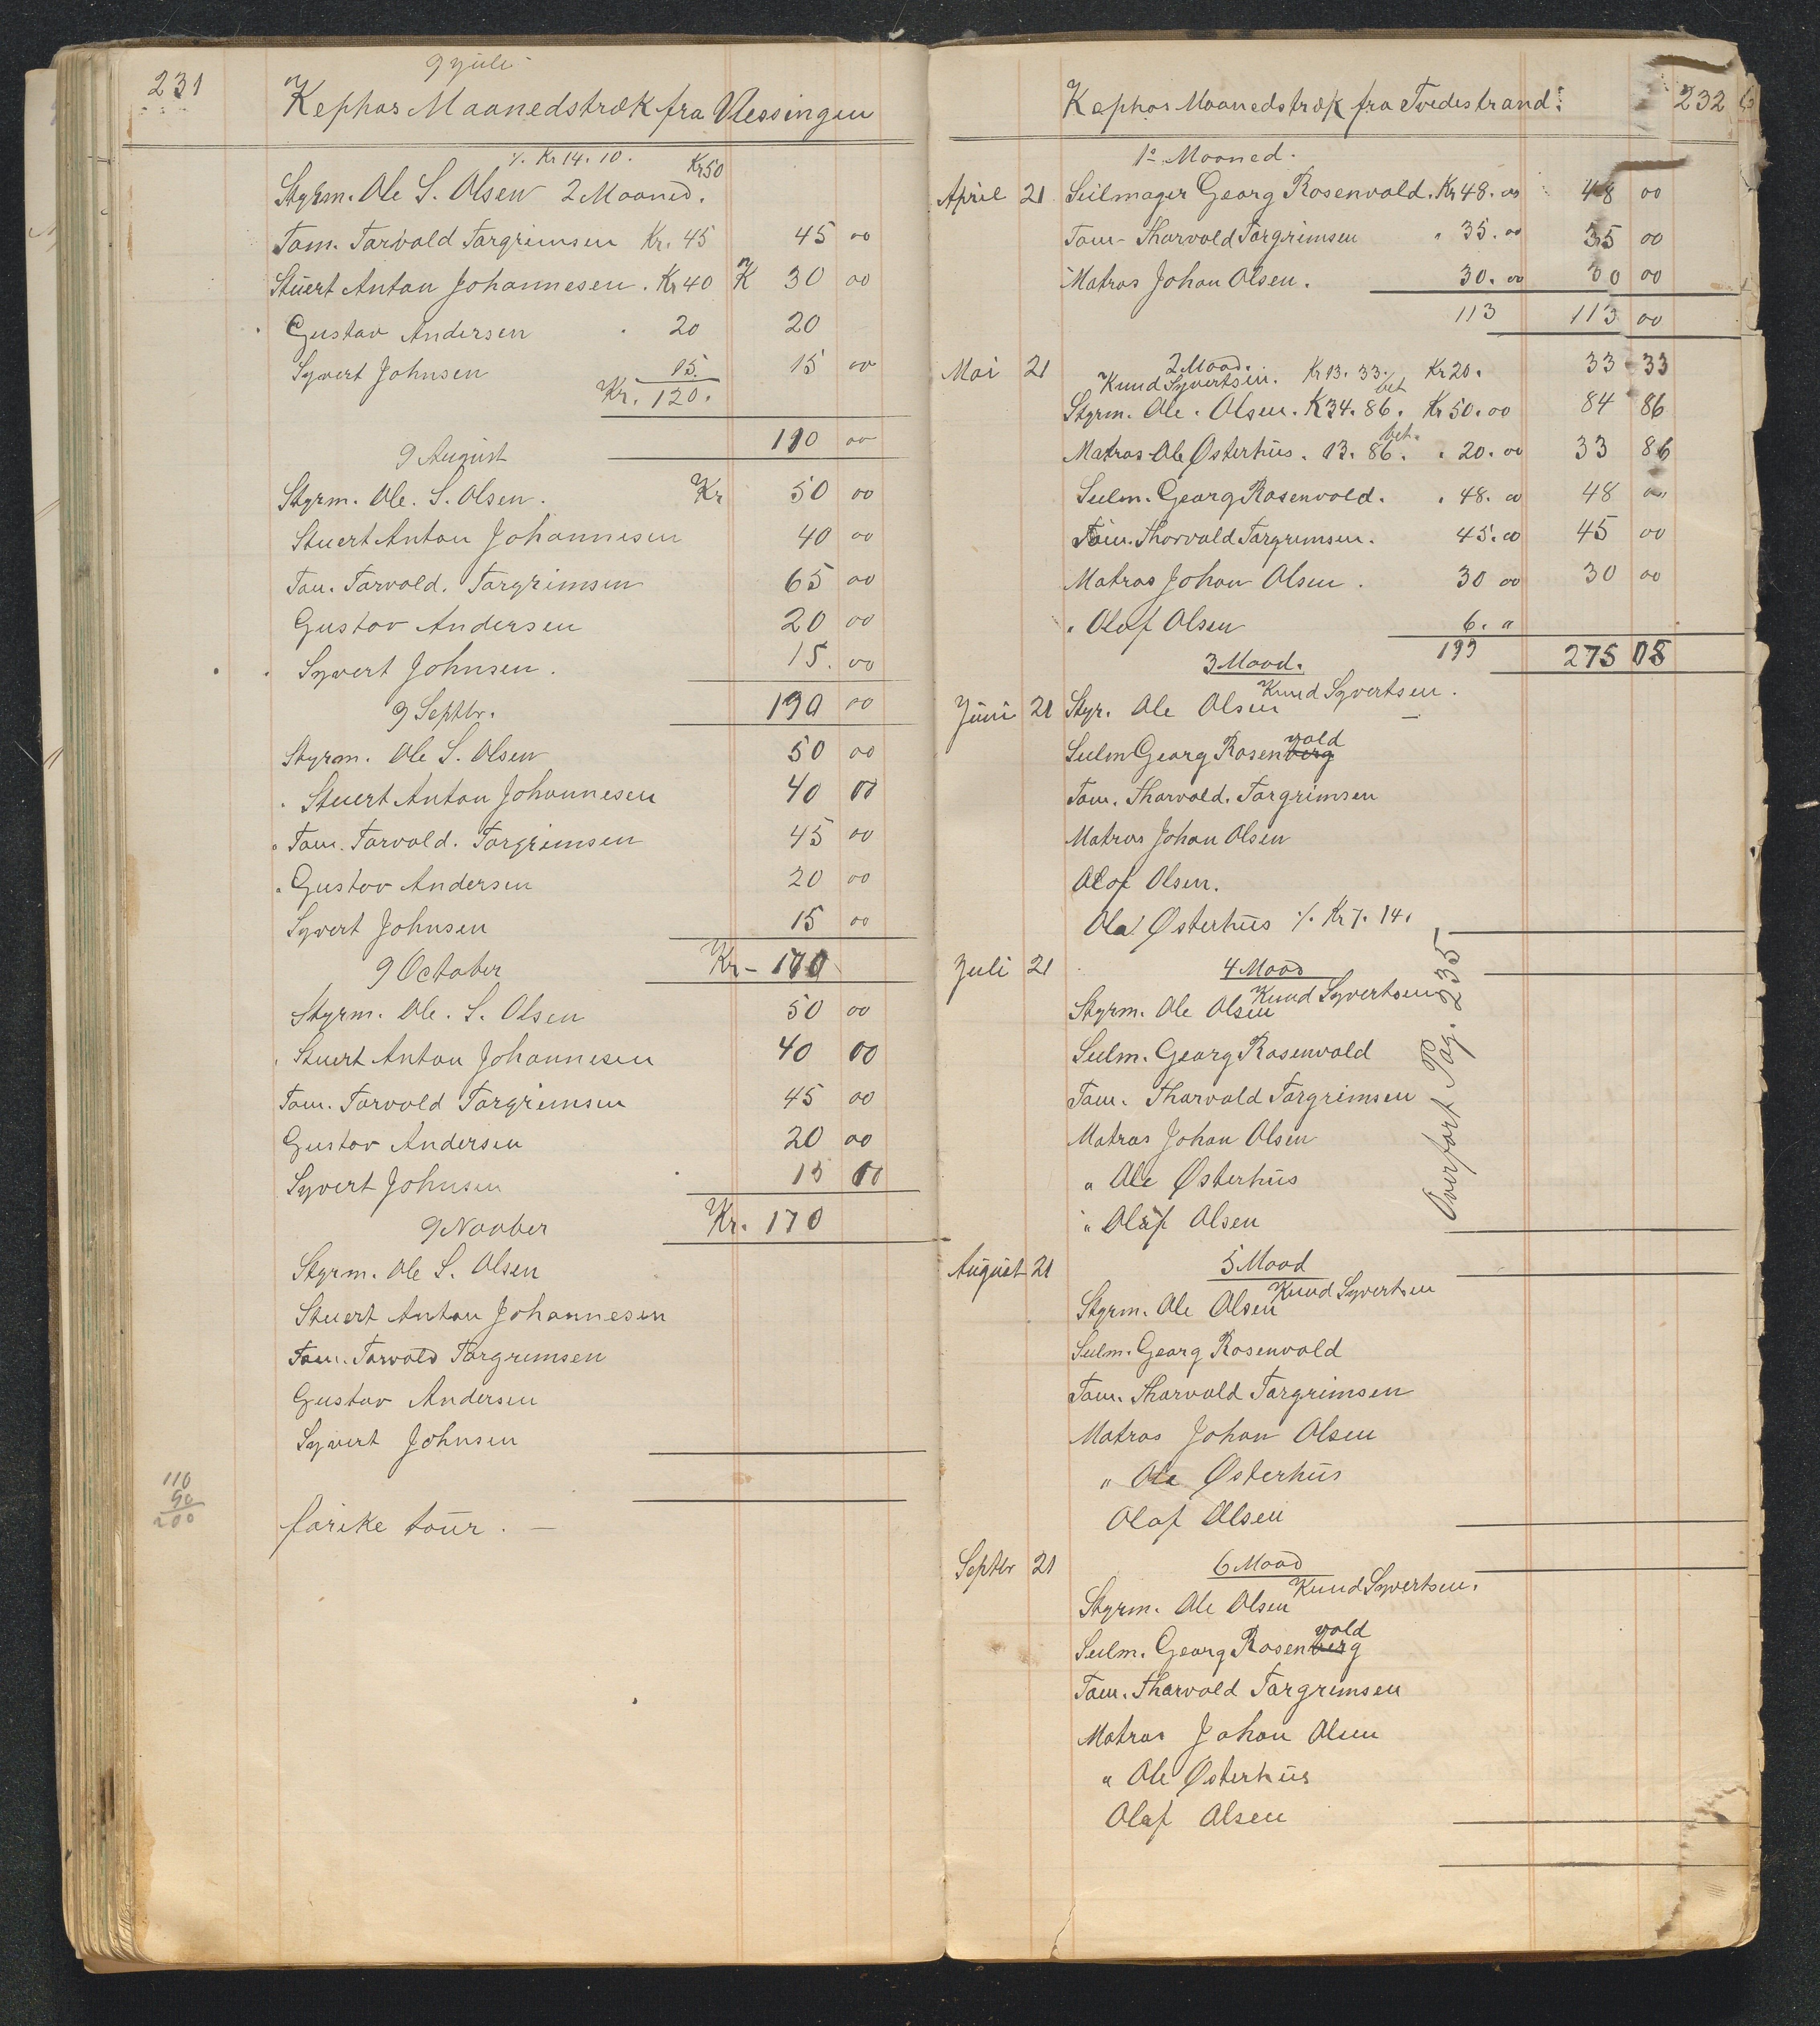 231
9 Juli
Kephas Maanedstræk fra Vlessingen
٪ Kr 14. 10. Kr 50
Styrm. Ole S. Olsen 2 Maaned.
Tøm. Tarvald Targrimsen Kr. 45 45 00
Stuert Antan Johannesen. Kr 40 K 30 00
Gustav Andersen 20 20
Syvert Johnsen 15. 15 00
Kr. 120.
110 00
9 August
Styrm. Ole. S. Olsen. Kr 50 00
Stuert Antan Johannesen 40 00
Tøm. Tarvald. Targrimsen 65 00
Gustav Andersen 20 00
Syvert Johnsen. 15. 00
190 00
9 Septbr.
Styrm. Ole S. Olsen 50 00
Stuert Antan Johannesen 40 00
Tøm. Tarvald. Targrimsen 45 00
Gustav Andersen 20 00
Syvert Johnsen 15 00
Kr - 170
9 October
Styrm. Ole. S. Olsen 50 00
Stuert Antan Johannesen 40 00
Tøm. Tarvald Targrimsen 45 00
Gustav Andersen 20 00
Syvert Johnsen 15 00
Kr. 170
9 Novber
Styrm. Ole S. Olsen
Stuert Antan Johannesen
Tøm. Tarvald Targrimsen
Gustav Andersen
Syvert Johnsen
110
90
200
farike tour. —
232
Kephas Maanedstræk fra Tvedestrand:
1ᵒ Maaned.
April 21 Seilmager Georg Rosenvold. Kr 48. 00 48 00
Tøm - Tharvald Targrimsen " 35. 00 35 00
Matros Johan Olsen. 30. 00 30 00
113 113 00
Mai 21 2 Maad.
Knud Syvertsen. Kr 13. 33. Kr 20. 33 33
Styrm. Ole. Olsen. K 34. 86. bet Kr 50. 00 84 86
Matros Ole Østerhus. 13. 86. bet. " 20. 00 33 86
Seilm. Georg Rosenvold. " 48. 00 48 00
Tøm. Tharvald Targrimsen. 45. 00 45 00
Matros Johan Olsen. 30 00 30 00
" Olaf Olsen 6. "
199 275 05
3 Maad.
Knud Syvertsen.
Juni 21 Styr. Ole Olsen —
Seilm Georg Rosenberg vold
Tøm. Tharvald. Targrimsen
Matros Johan Olsen
Olaf Olsen.
Ole Østerhus ٪ Kr 7. 14.
Juli 21 4 Maad
Knud Syvertsen
Styrm. Ole Olsen
Seilm. Georg Rosenvold
Tøm. Tharvald Targrimsen
Matros Johan Olsen
" Ole Østerhus
" Olaf Olsen
Overført Pag. 235
August 21 5 Maad
Knud Syvertsen
Styrm. Ole Olsen
Seilm. Georg Rosenvold
Tøm. Tharvald Targrimsen
Matros Johan Olsen
" Ole Østerhus
Olaf Olsen
Septbr 21 6 Maad
Knud Syvertsen.
Styrm. Ole Olsen
Seilm. Georg Rosenberg vold
Tøm. Tharvald Targrimsen
Matros Johan Olsen
" Ole Østerhus
Olaf Olsen